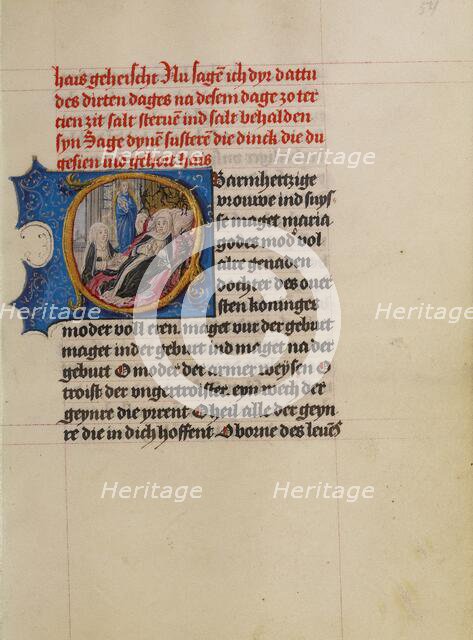 54
hais geheischt Nu sagē ich dyr dattu
des dirten dages na desem dage zo ter
cien zit salt steruē ind salt behalden
syn Sage dynē susterē die dinck die du
gesien ind gehort hais
Barmhertzige
vrouwe ind suys
se maget maria
godes mod' vol
alre genaden
dochter des ouer
sten koninges
moder voll eren. maget vur der geburt
maget in der geburt ind maget na der
geburt O moder der armer weysen O
troist der vngertroister. eyn wech der
geynre die yrrent O heil alle der geyn-
re die in dich hoffent O borne des leuēs
Heritage
Heritage
Heritage
Heritage
Heritage
Heritage
Heritage
Heritage